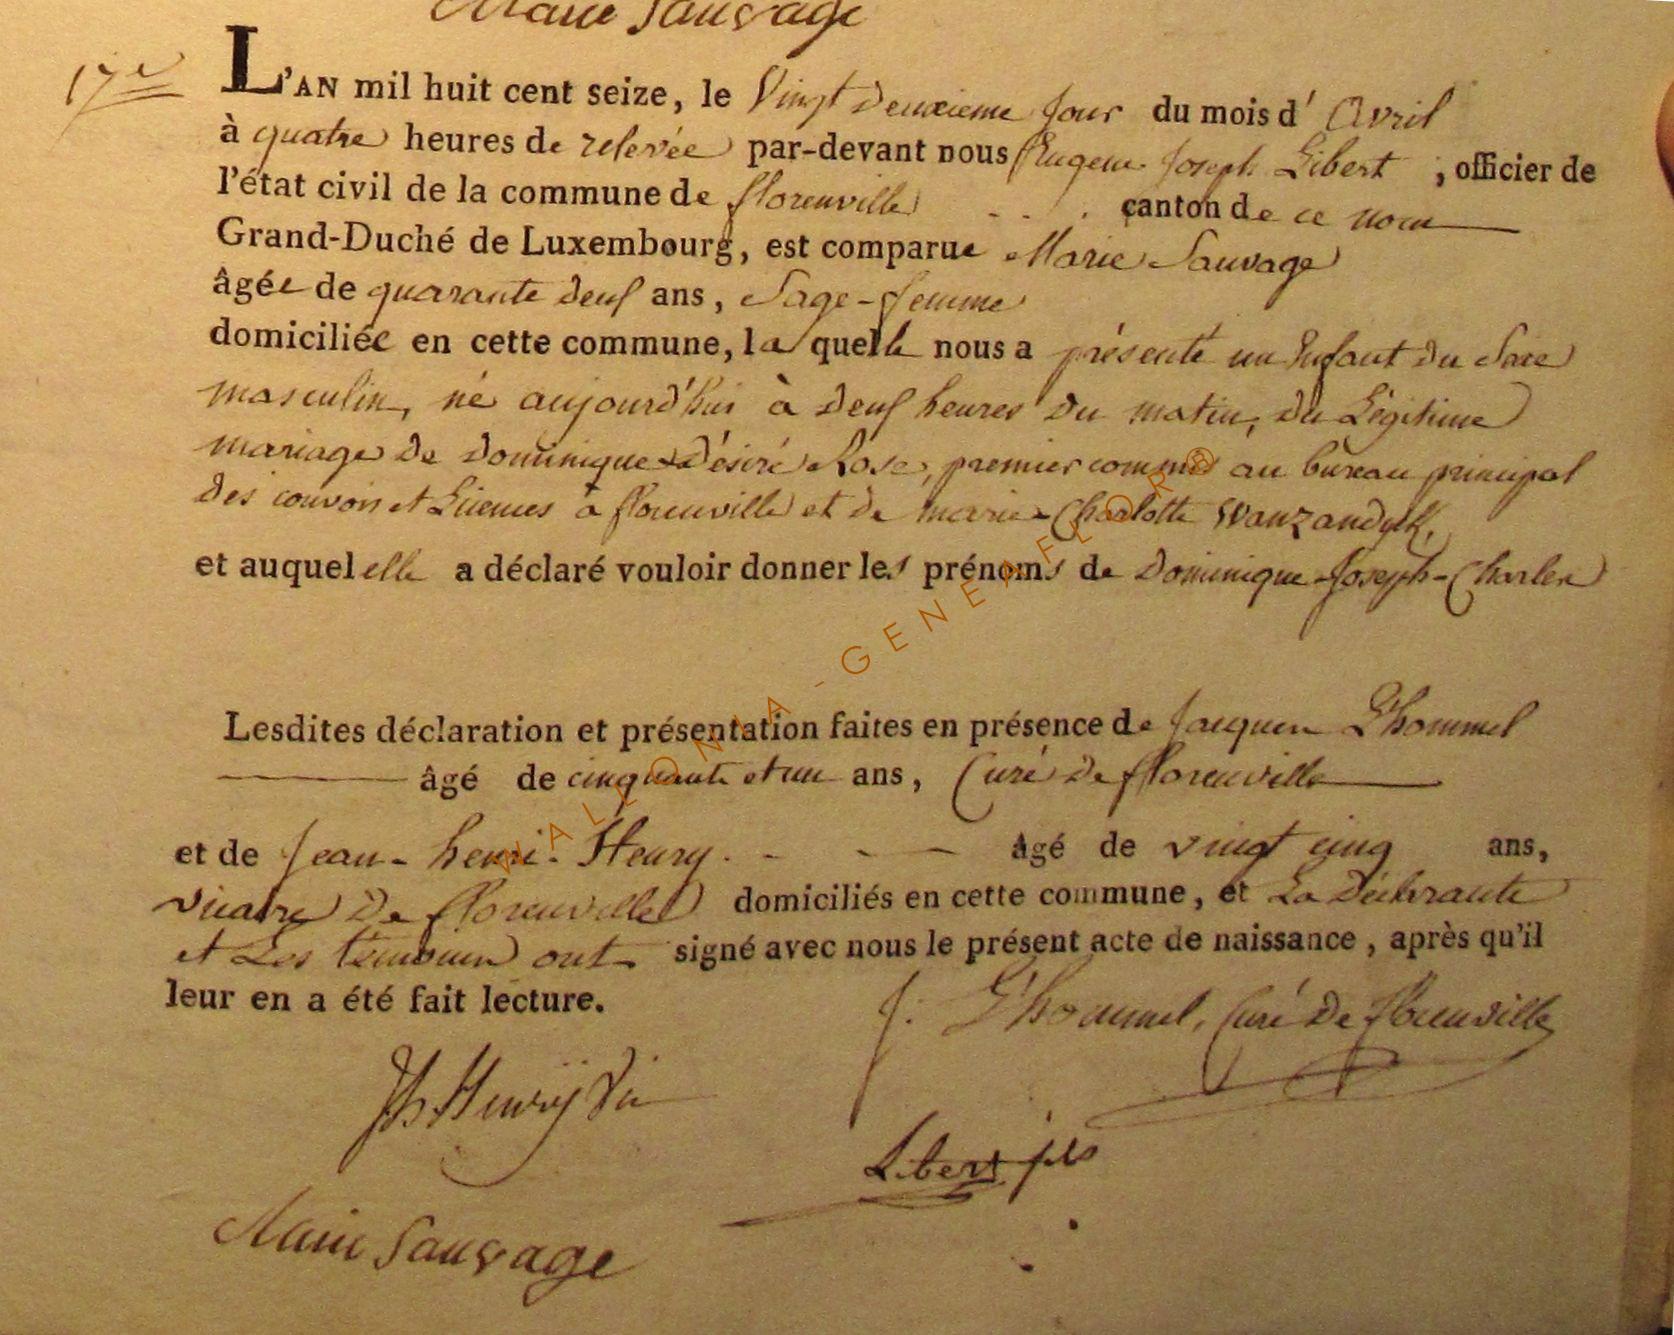 Marie Sauvage
17e
L'AN mil huit cent seize, le Vingt deuxieme Jour du mois d' Avril
à quatre heures de relevée par-devant nous Eugene Joseph Libert, officier de
l'état civil de la commune de florenville . . . canton de ce nom
Grand-Duché de Luxembourg, est comparue Marie Sauvage
âgée de quarante deuf ans, Sage-femme
domiciliée en cette commune, la quelle nous a présenté un Enfant du Sexe
masculin, né aujourd'hui à deuf heures du matin, du Légitime
mariage de Dominique-Désiré Rose, premier commis au bureau principal
des convois et Licences à florenville et de marie-Charlotte Wanzandyck,
et auquel elle a déclaré vouloir donner les prénoms de Dominique-Joseph-Charles
Lesdites déclaration et présentation faites en présence de Jacques L'hommel
âgé de cinquante et un ans, Curé de florenville
et de Jean-henri-Henry. - - - âgé de vingt cinq ans,
vicaire de florenville domiciliés en cette commune, et La Déclarante
et Les témoins ont signé avec nous le présent acte de naissance, après qu'il
leur en a été fait lecture.
J. L'hommel, Curé de florenville
Jh Henrÿ Vic
Libert fils
Marie Sauvage
WALLONIA-GENEAFLOR®